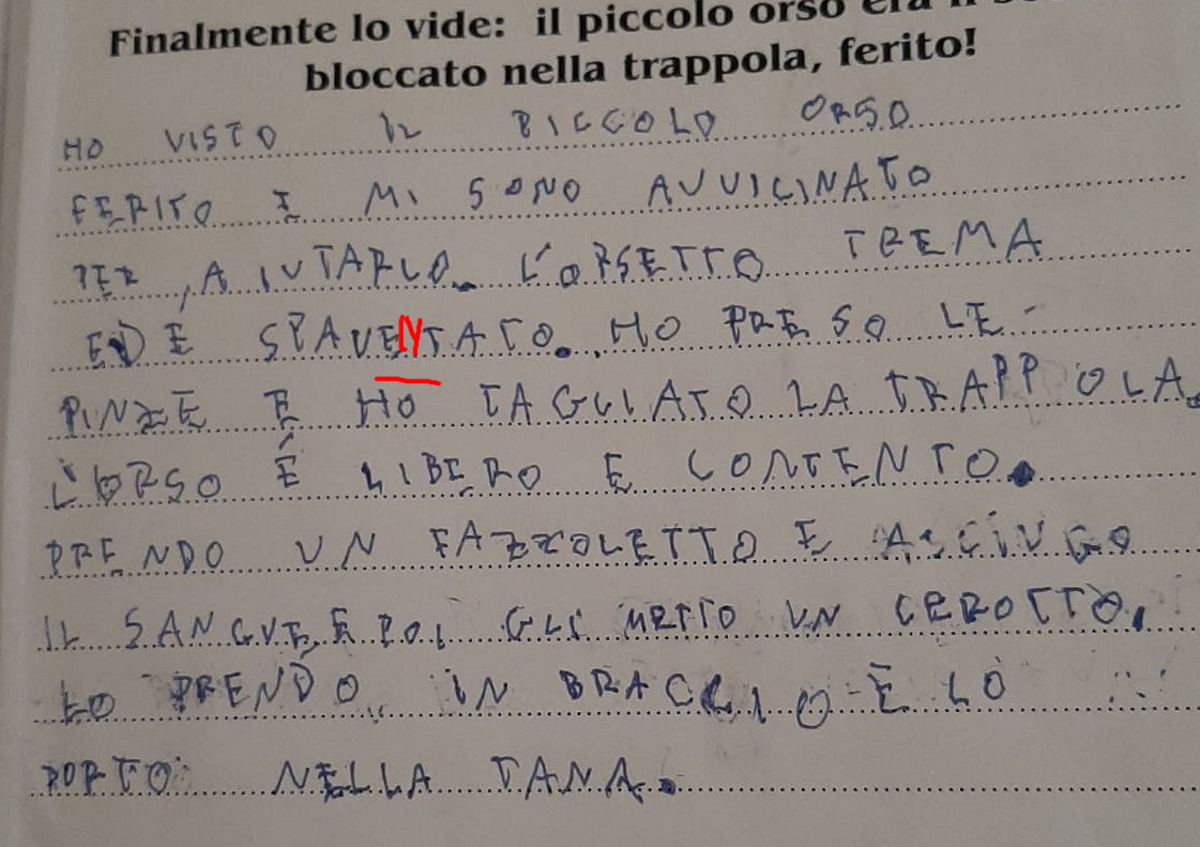 Finalmente lo vide: il piccolo orso era
bloccato nella trappola, ferito!
HO VISTO IL PICCOLO ORSO
FERITO E MI SONO AVVICINATO
PER AIUTARLO. L'ORSETTO TREMA
ED È SPAVENTATO. HO PRESO LE
PINZE E HO TAGLIATO LA TRAPPOLA.
L'ORSO È LIBERO E CONTENTO.
PRENDO UN FAZZOLETTO E ASCIUGO
IL SANGUE, E POI GLI METTO UN CEROTTO,
LO PRENDO IN BRACCIO E LO
PORTO NELLA TANA.